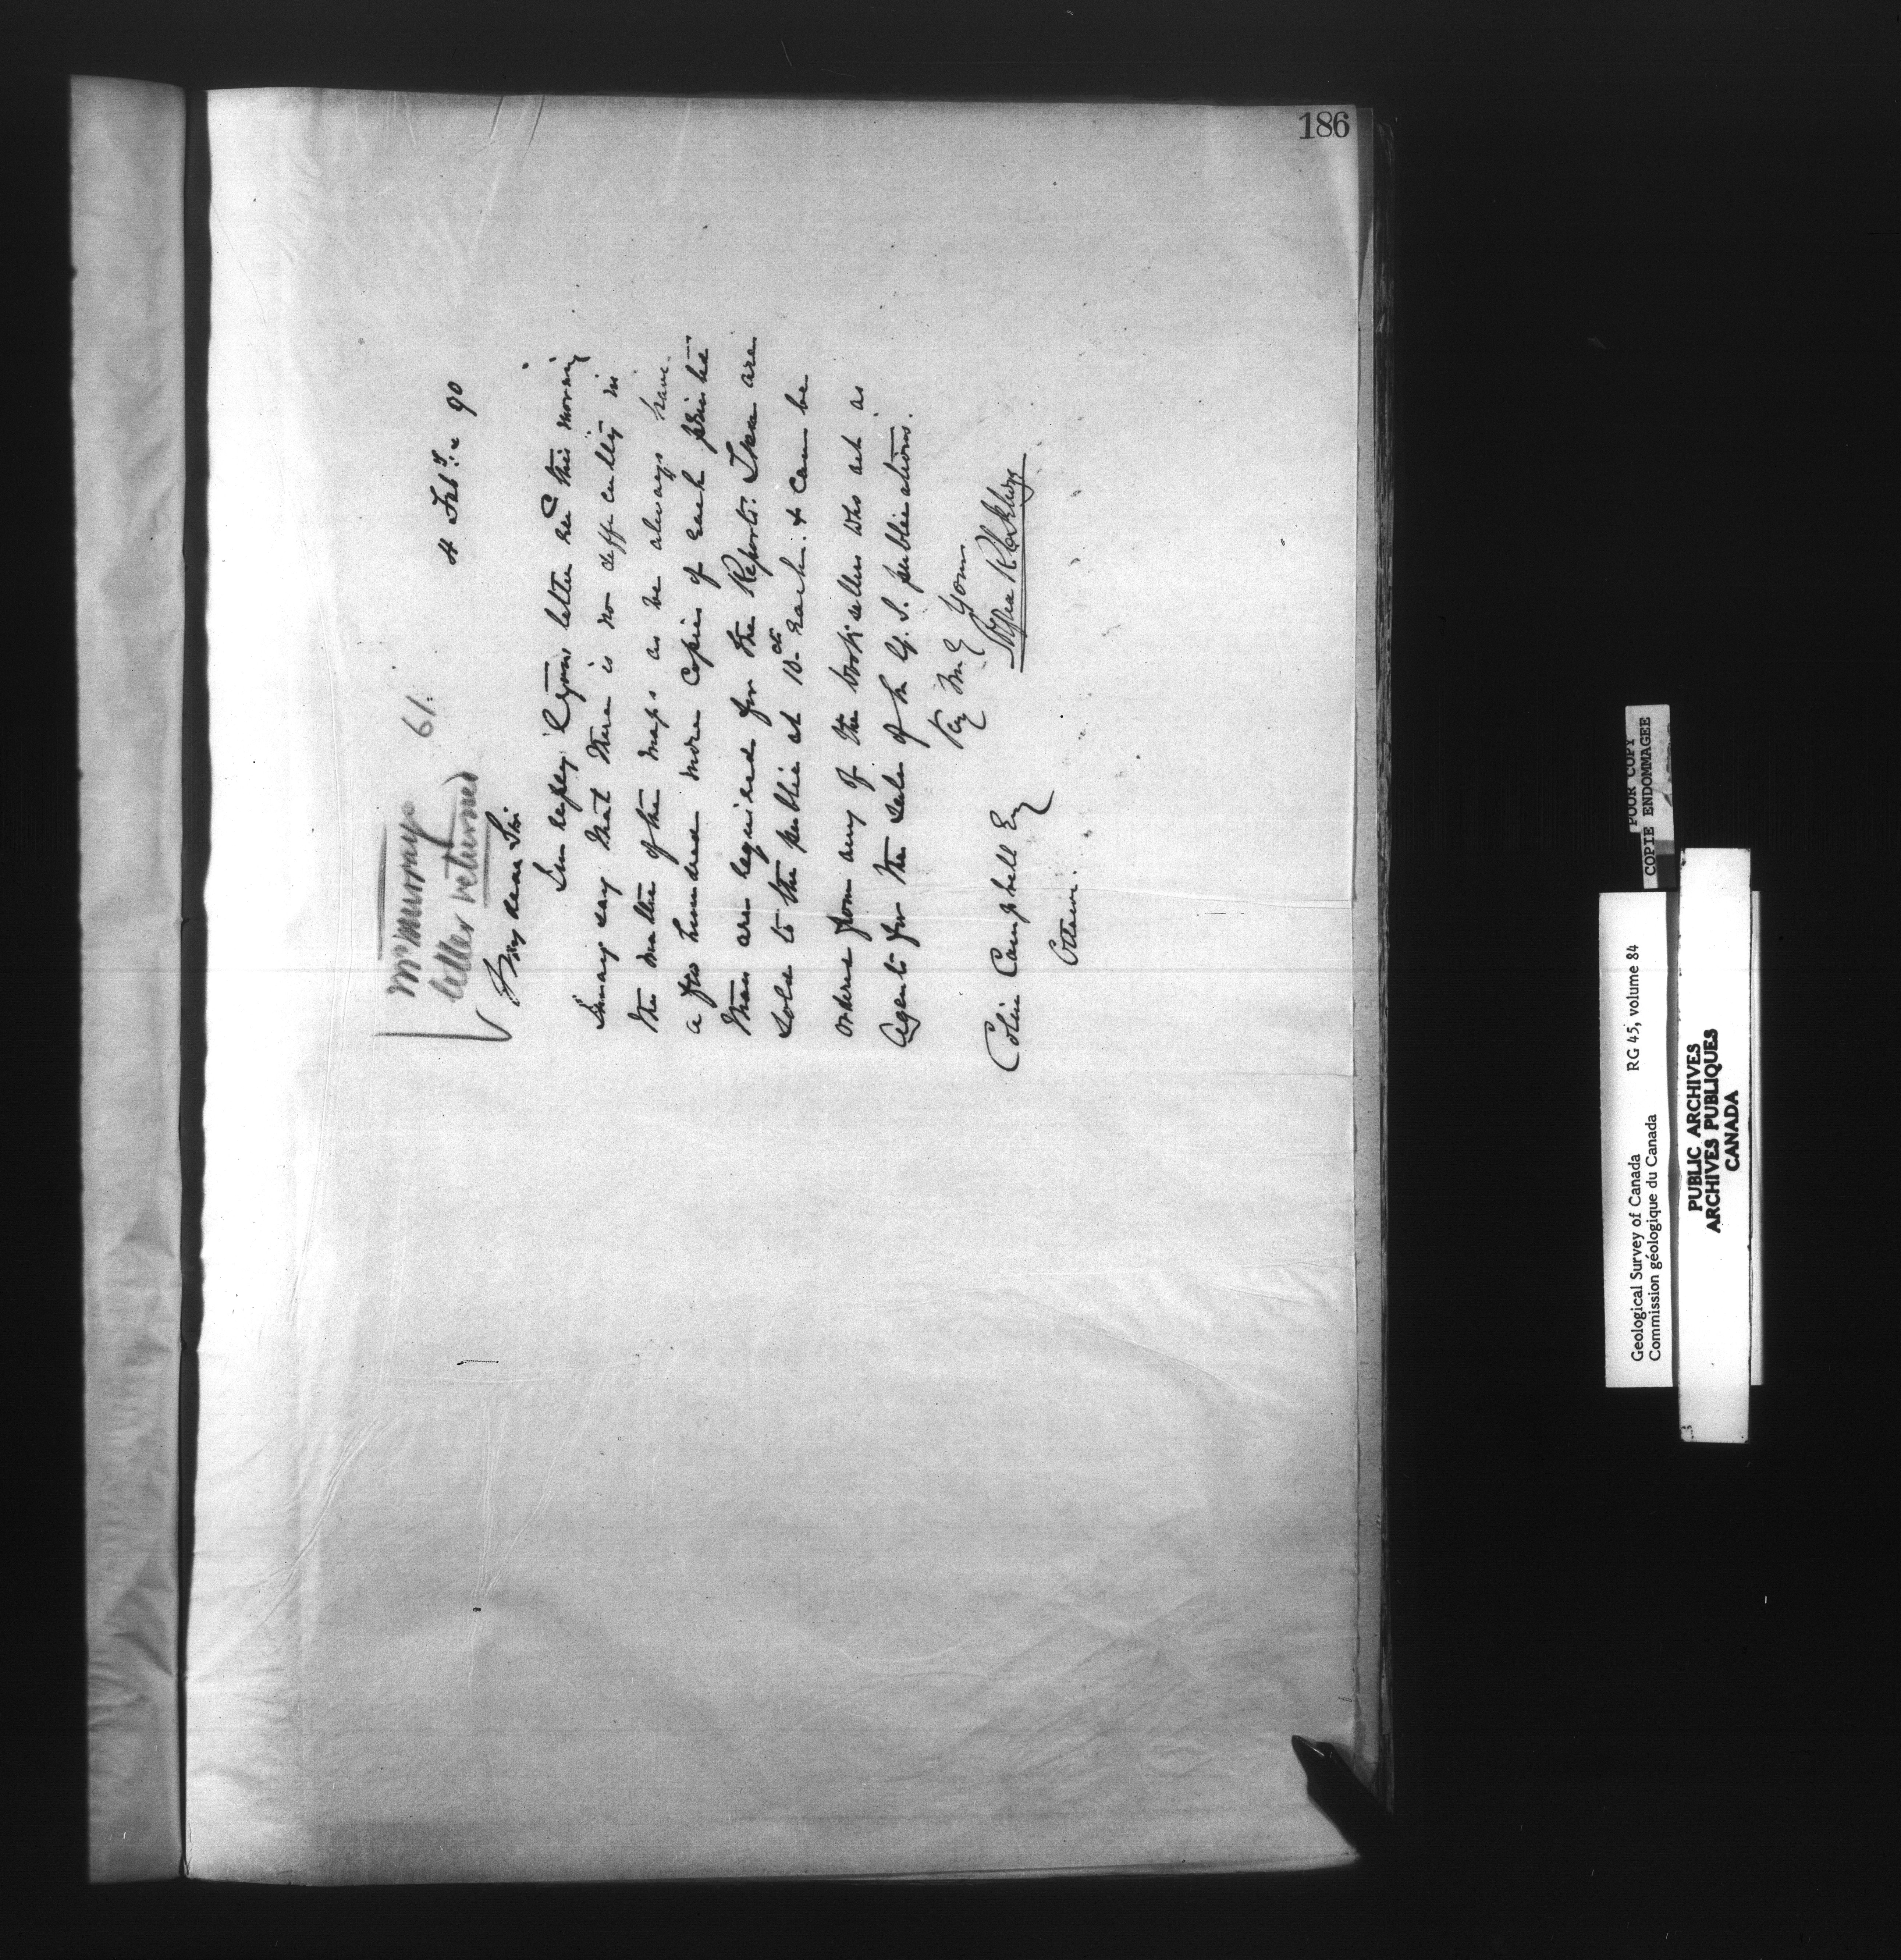 186
McMurray
letter returned
61.
4 Feby. 90
My dear Sir.
In reply to your letter recd this morning
I may say that there is no difficulty in
the matter of the maps as we always have
a few hundred more copies of each printed
than are required for the Reports. These are
sold to the public at 10cts each. & can be
ordered from any of the booksellers who act as
Agents for the sale of the G. S. publications.
Yours
Colin Campbell Esq
Ottawa.
POOR COPY
COPIE ENDOMMAGEE
Geological Survey of Canada RG 45, volume 84
Commission géologique du Canada
PUBLIC ARCHIVES
ARCHIVES PUBLIQUES
CANADA